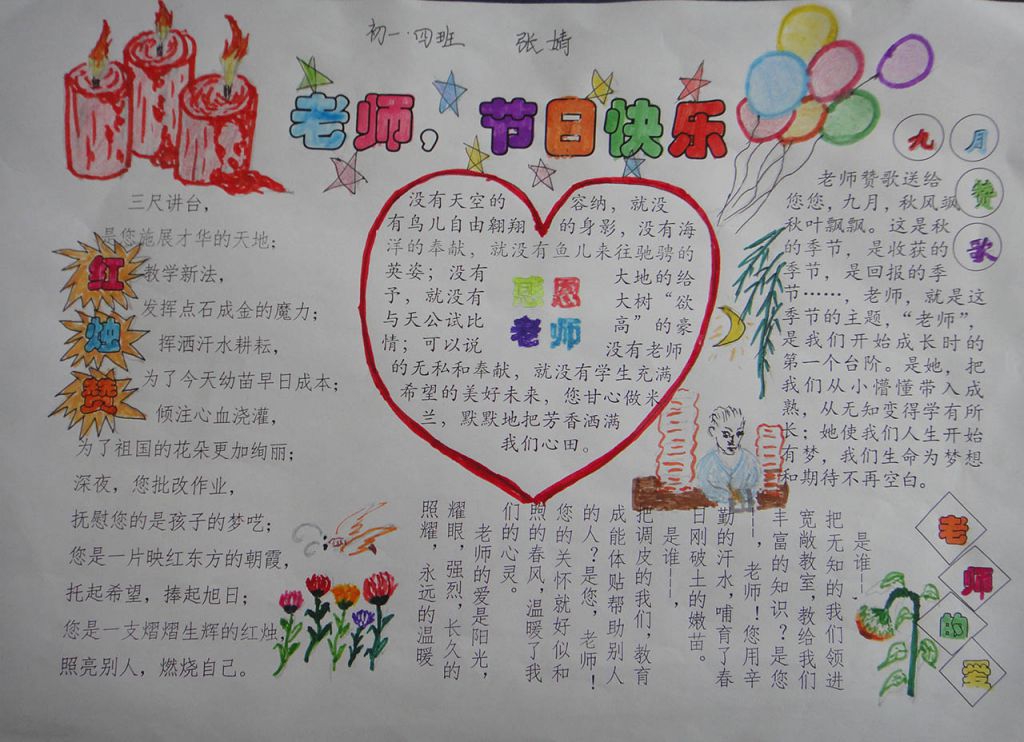 初一·四班 张婧
老师，节日快乐
红烛赞
三尺讲台，
是您施展才华的天地；
教学新法，
发挥点石成金的魔力；
挥洒汗水耕耘，
为了今天幼苗早日成本；
倾注心血浇灌，
为了祖国的花朵更加绚丽；
深夜，您批改作业，
抚慰您的是孩子的梦呓；
您是一片映红东方的朝霞，
托起希望，捧起旭日；
您是一支熠熠生辉的红烛，
照亮别人，燃烧自己。
感恩
老师
没有天空的容纳，就没
有鸟儿自由翱翔的身影，没有海
洋的奉献，就没有鱼儿来往驰骋的
英姿；没有大地的给
予，就没有大树“欲
与天公试比高”的豪
情；可以说没有老师
的无私和奉献，就没有学生充满
希望的美好未来，您甘心做米
兰，默默地把芳香洒满
我们心田。
九月赞歌
老师赞歌送给
您您，九月，秋风飒
秋叶飘飘。这是秋
的季节，是收获的
季节，是回报的季
节……，老师，就是这
季节的主题，“老师”，
是我们开始成长时的
第一个台阶。是她，把
我们从小懵懂带入成
熟，从无知变得学有所
长；她使我们人生开始
有梦，我们生命为梦想
和期待不再空白。
老师的爱
是谁——
把无知的我们领进
宽敞教室，教给我们
丰富的知识？是您
——，老师！您用辛
勤的汗水，哺育了春
日刚破土的嫩苗。
是谁——，
把调皮的我们，教育
成能体贴帮助别人
的人？是您，老师！
您的关怀就好似和
煦的春风，温暖了我
们的心灵。
老师的爱是阳光，
耀眼，强烈，长久的
照耀，永远的温暖